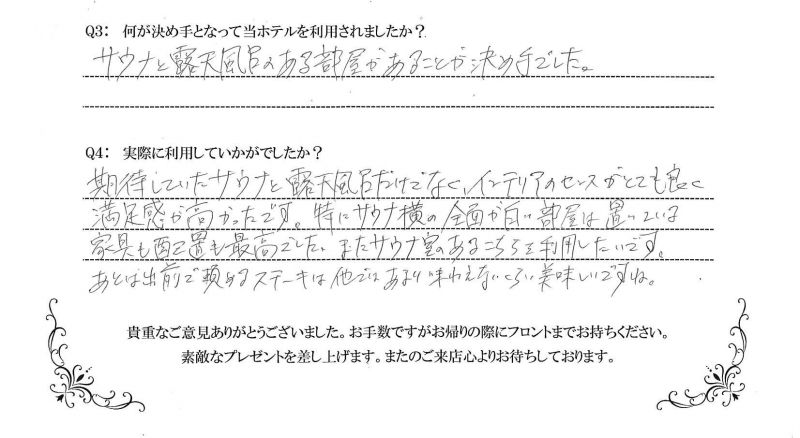 Q3: 何が決め手となって当ホテルを利用されましたか？
サウナと露天風呂のある部屋があることが決め手でした。
Q4: 実際に利用していかがでしたか？
期待していたサウナと露天風呂だけでなく、インテリアのセンスがとても良く
満足感が高かったです。特にサウナ横の全面が白い部屋は置いている
家具も配置も最高でした。またサウナ室のあるこちらを利用したいです。
あとは出前で頼めるステーキは他ではあまり味わえないくらい美味しいですね。
貴重なご意見ありがとうございました。お手数ですがお帰りの際にフロントまでお持ちください。
素敵なプレゼントを差し上げます。またのご来店心よりお待ちしております。